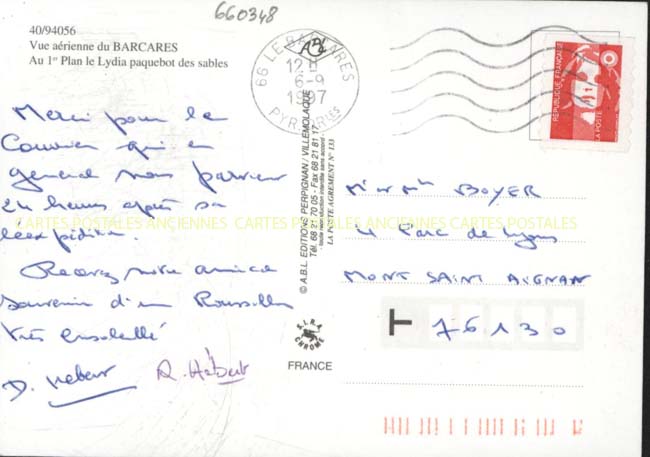 660348
40/94056
Vue aérienne du BARCARES
Au 1er Plan le Lydia paquebot des sables
66 LE BARCARES
12 H
6-9
1997
PYR. ORLES
REPUBLIQUE FRANÇAISE
LA POSTE
ABL
© A.B.L. EDITIONS PERPIGNAN / VILLEMOLAQUE
Tél. 68 21 70 05 - Fax 68 21 81 17
- toute reproduction interdite sans accord -
LA POSTE AGREMENT N° 133
Merci pour le
Courrier qui en
général nous parvient
24 heures après sa
Recevez notre amical
souvenir d'un Roussillon
très ensoleillé
D. Hébert
R. Hébert
BOYER
Parc de Lyons
MONT SAINT AIGNAN
T 76130
CARTES POSTALES ANCIENNES CARTES POSTALES ANCIENNES CARTES POSTALES ANCIENNES
S.I.R.A.
CHROME
FRANCE